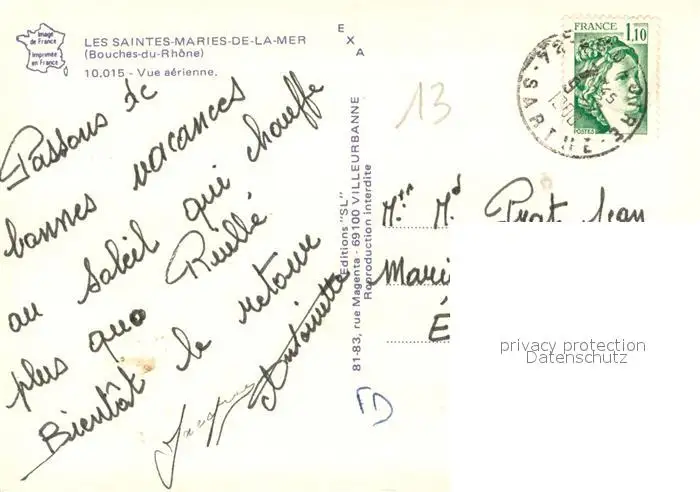 Image
de France
Imprimée
en France
LES SAINTES-MARIES-DE-LA-MER
(Bouches-du-Rhône)
10.015 - Vue aérienne.
EXA
Passons de
bonnes vacances
au soleil qui chauffe
plus que Ruillé.
Bientôt le retour
Jacques Antoinette
Editions "SL"
81-83, rue Magenta - 69100 VILLEURBANNE
Reproduction interdite
13
FRANCE 1,10
POSTES
SARTHE
Mr Md Prat Jean
Mari
É
privacy protection
Datenschutz